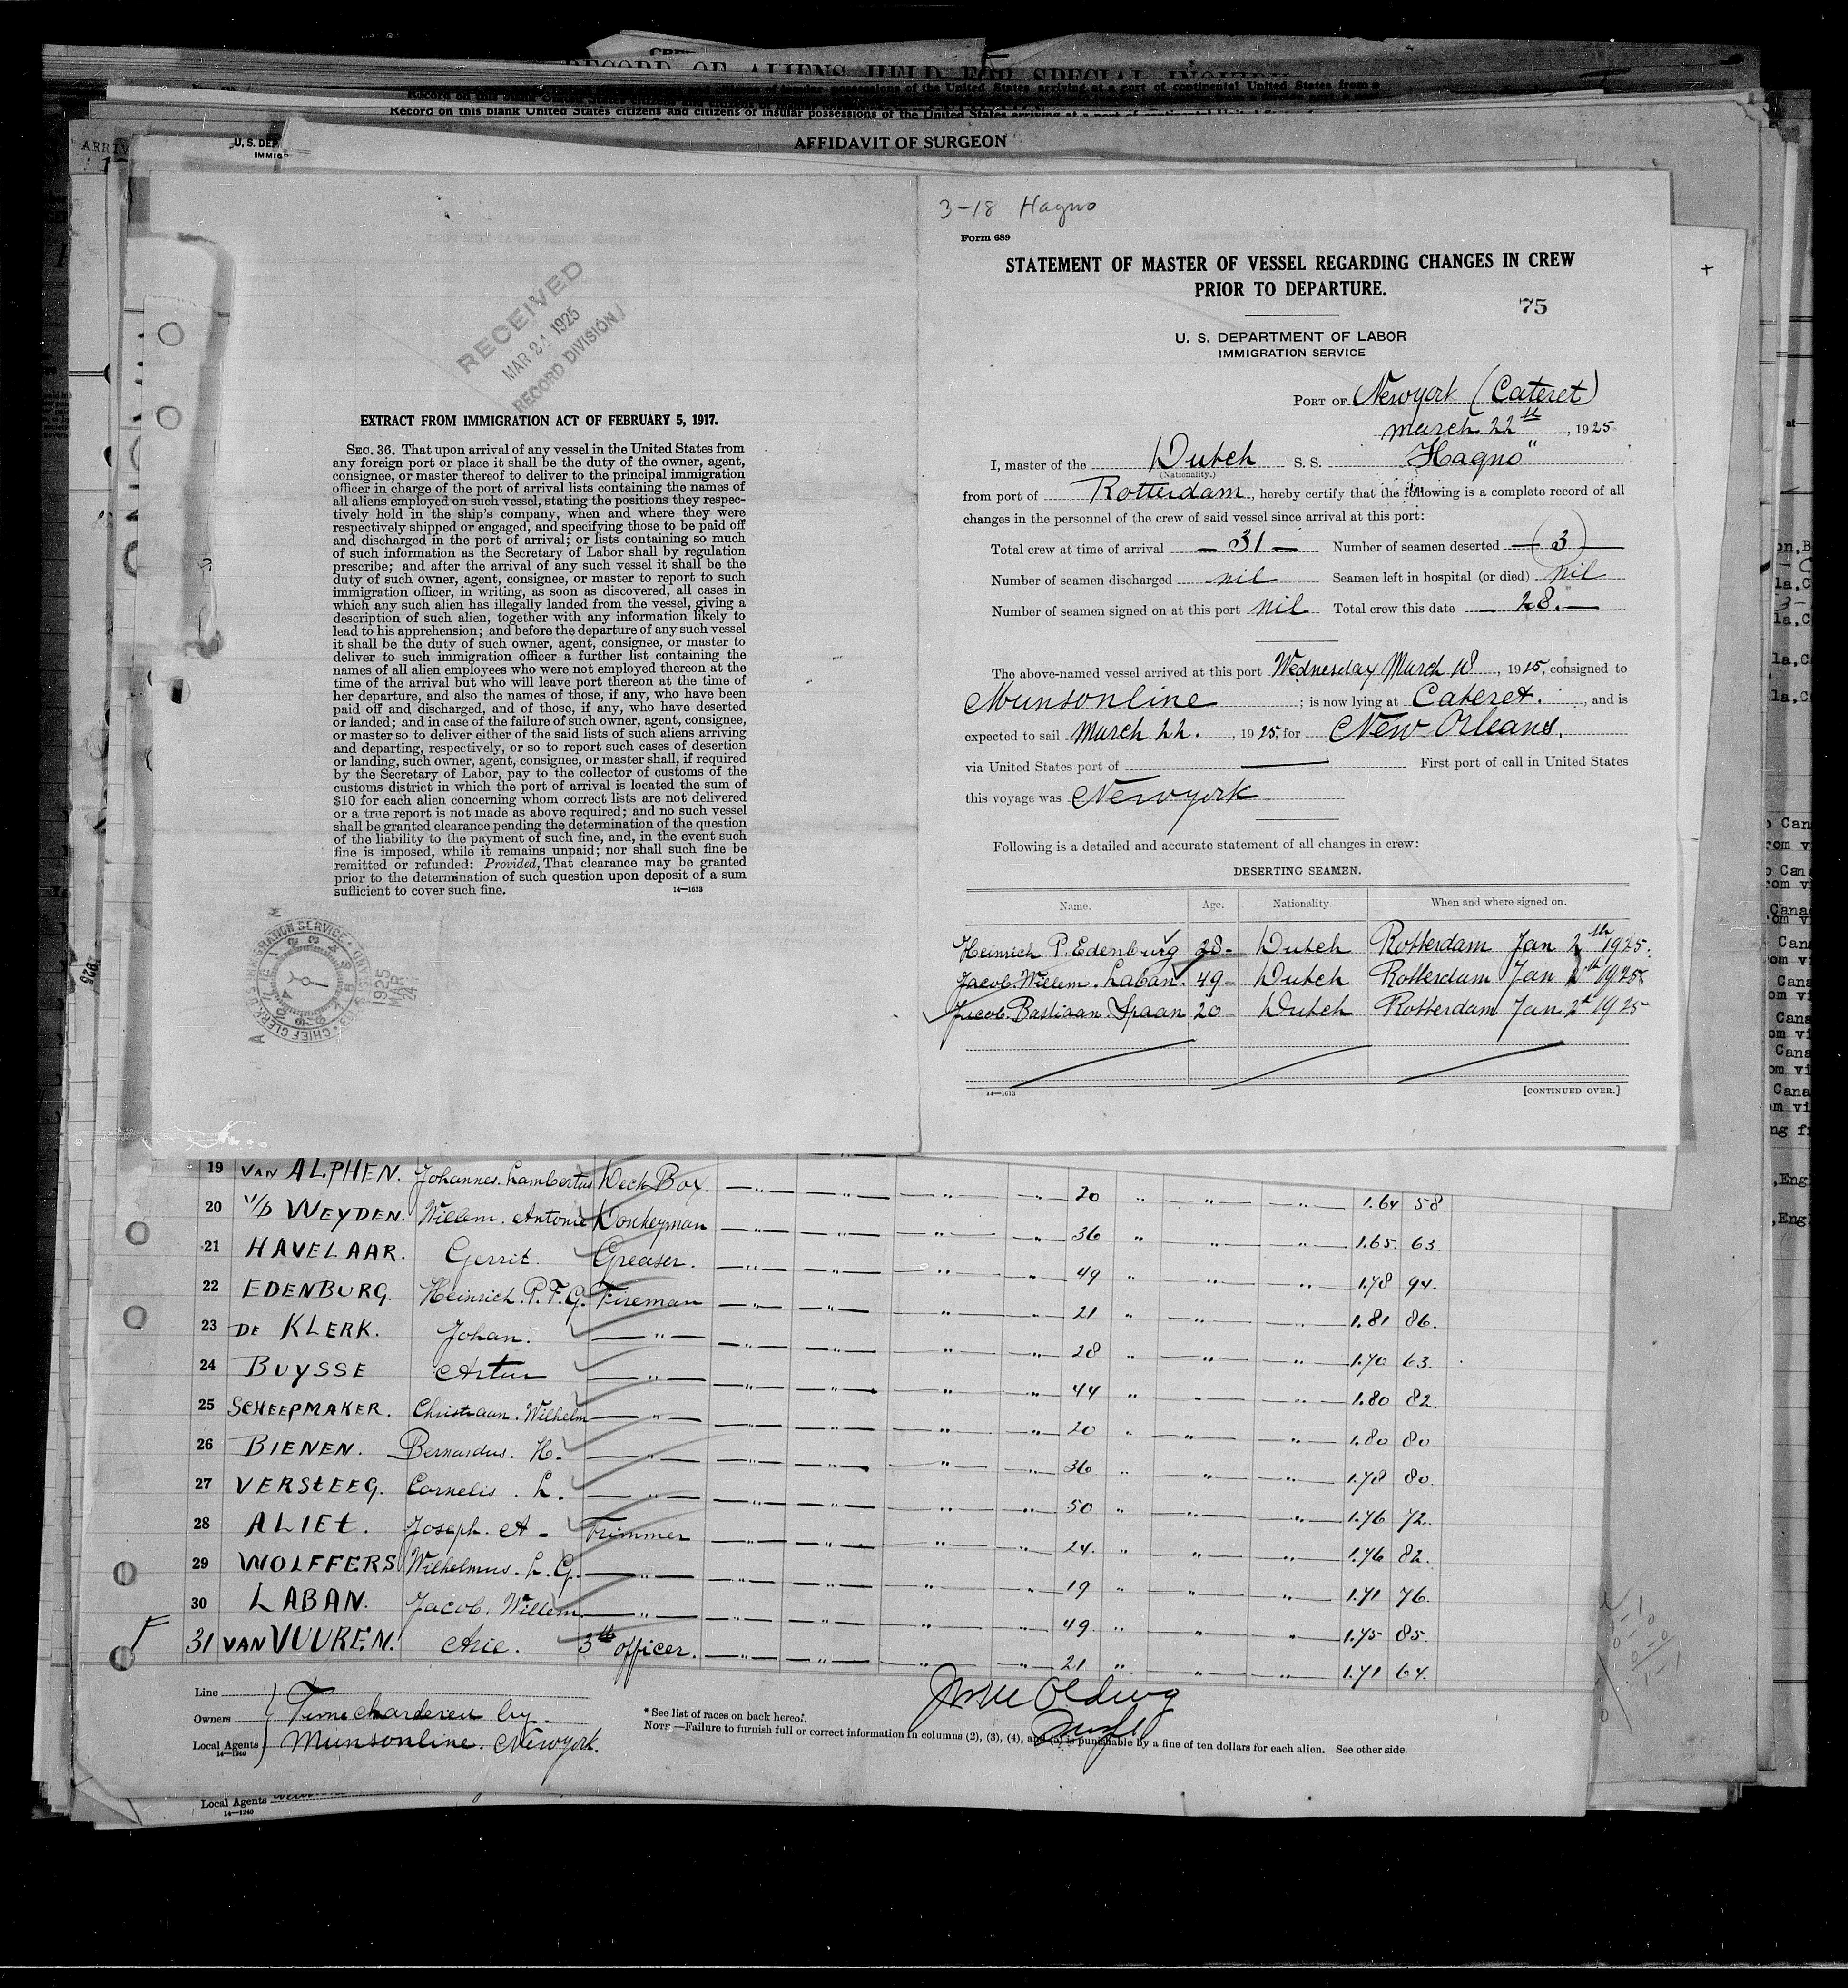 RECORD OF ALIENS HELD FOR SPECIAL INQUIRY
Record on this blank United States citizens and citizens of insular possessions of the United States arriving at a port of continental United States from a
Record on this blank United States citizens and citizens of insular possessions of the United States arriving at a port of continental United States from
AFFIDAVIT OF SURGEON
ARRIV
U. S. DEP
IMMIG
RECEIVED
MAR 24 1925
RECORD DIVISION
EXTRACT FROM IMMIGRATION ACT OF FEBRUARY 5, 1917.
SEC. 36. That upon arrival of any vessel in the United States from
any foreign port or place it shall be the duty of the owner, agent,
consignee, or master thereof to deliver to the principal immigration
officer in charge of the port of arrival lists containing the names of
all aliens employed on such vessel, stating the positions they respec-
tively hold in the ship's company, when and where they were
respectively shipped or engaged, and specifying those to be paid off
and discharged in the port of arrival; or lists containing so much
of such information as the Secretary of Labor shall by regulation
prescribe; and after the arrival of any such vessel it shall be the
duty of such owner, agent, consignee, or master to report to such
immigration officer, in writing, as soon as discovered, all cases in
which any such alien has illegally landed from the vessel, giving a
description of such alien, together with any information likely to
lead to his apprehension; and before the departure of any such vessel
it shall be the duty of such owner, agent, consignee, or master to
deliver to such immigration officer a further list containing the
names of all alien employees who were not employed thereon at the
time of the arrival but who will leave port thereon at the time of
her departure, and also the names of those, if any, who have been
paid off and discharged, and of those, if any, who have deserted
or landed; and in case of the failure of such owner, agent, consignee,
or master so to deliver either of the said lists of such aliens arriving
and departing, respectively, or so to report such cases of desertion
or landing, such owner, agent, consignee, or master shall, if required
by the Secretary of Labor, pay to the collector of customs of the
customs district in which the port of arrival is located the sum of
$10 for each alien concerning whom correct lists are not delivered
or a true report is not made as above required; and no such vessel
shall be granted clearance pending the determination of the question
of the liability to the payment of such fine, and, in the event such
fine is imposed, while it remains unpaid; nor shall such fine be
remitted or refunded: Provided, That clearance may be granted
prior to the determination of such question upon deposit of a sum
sufficient to cover such fine. 14—1613
1925 MAR 24
3-18 Hagno
Form 689
STATEMENT OF MASTER OF VESSEL REGARDING CHANGES IN CREW
PRIOR TO DEPARTURE.
75
U. S. DEPARTMENT OF LABOR
IMMIGRATION SERVICE
PORT OF Newyork (Cateret)
March 22th, 1925.
I, master of the Dutch S. S. Hagno"
(Nationality.)
from port of Rotterdam, hereby certify that the following is a complete record of all
changes in the personnel of the crew of said vessel since arrival at this port:
Total crew at time of arrival — 31 — Number of seamen deserted — (3) —
Number of seamen discharged nil Seamen left in hospital (or died) nil
Number of seamen signed on at this port nil Total crew this date — 28. —
The above-named vessel arrived at this port Wednesday March 18, 1925, consigned to
Munsonline; is now lying at Cateret., and is
expected to sail March 22., 1925, for New Orleans.
via United States port of — First port of call in United States
this voyage was Newyork
Following is a detailed and accurate statement of all changes in crew:
DESERTING SEAMEN.
Name. Age. Nationality When and where signed on.
Heinrich P. Edenburg 28 - Dutch Rotterdam Jan 2th 1925.
Jacob Willem. Laban. 49 - Dutch Rotterdam Jan 2th 1925
Jacob. Bastiaan. Spaan 20 - Dutch Rotterdam Jan 2th 1925
14—1613 [CONTINUED OVER.]
19 VAN ALPHEN. Johannes. Lambertus Deck Boy. 20 1.64 58
20 V/D WEYDEN. Willem. Antonie Donkeyman 36 1.65. 63
21 HAVELAAR. Gerrit. Greaser. 49 1.78 94.
22 EDENBURG. Heinrich. P. F. G. Fireman 21 1.81 86.
23 DE KLERK. Johan. 28 1.70 63.
24 BUYSSE Artur 44 1.80 82.
25 SCHEEPMAKER. Christiaan. Wilhelm 20 1.80 80
26 BIENEN. Bernardus. H. 36 1.78 80.
27 VERSTEEG. Cornelis. L. 50 1.76 72.
28 ALIET. Joseph. A - Trimmer 24. 1.76 82.
29 WOLFFERS Wilhelmus. L. G. 19 1.71 76.
30 LABAN. Jacob. Willem 49. 1.75 85.
31 VAN VUUREN. Arie. 3th officer. 21 1.71 64.
Line
Owners Time chartered by.
Local Agents Munsonline. Newyork.
14—1240
* See list of races on back hereof.
NOTE.—Failure to furnish full or correct information in columns (2), (3), (4), and (5) is punishable by a fine of ten dollars for each alien. See other side.
Local Agents
14—1240